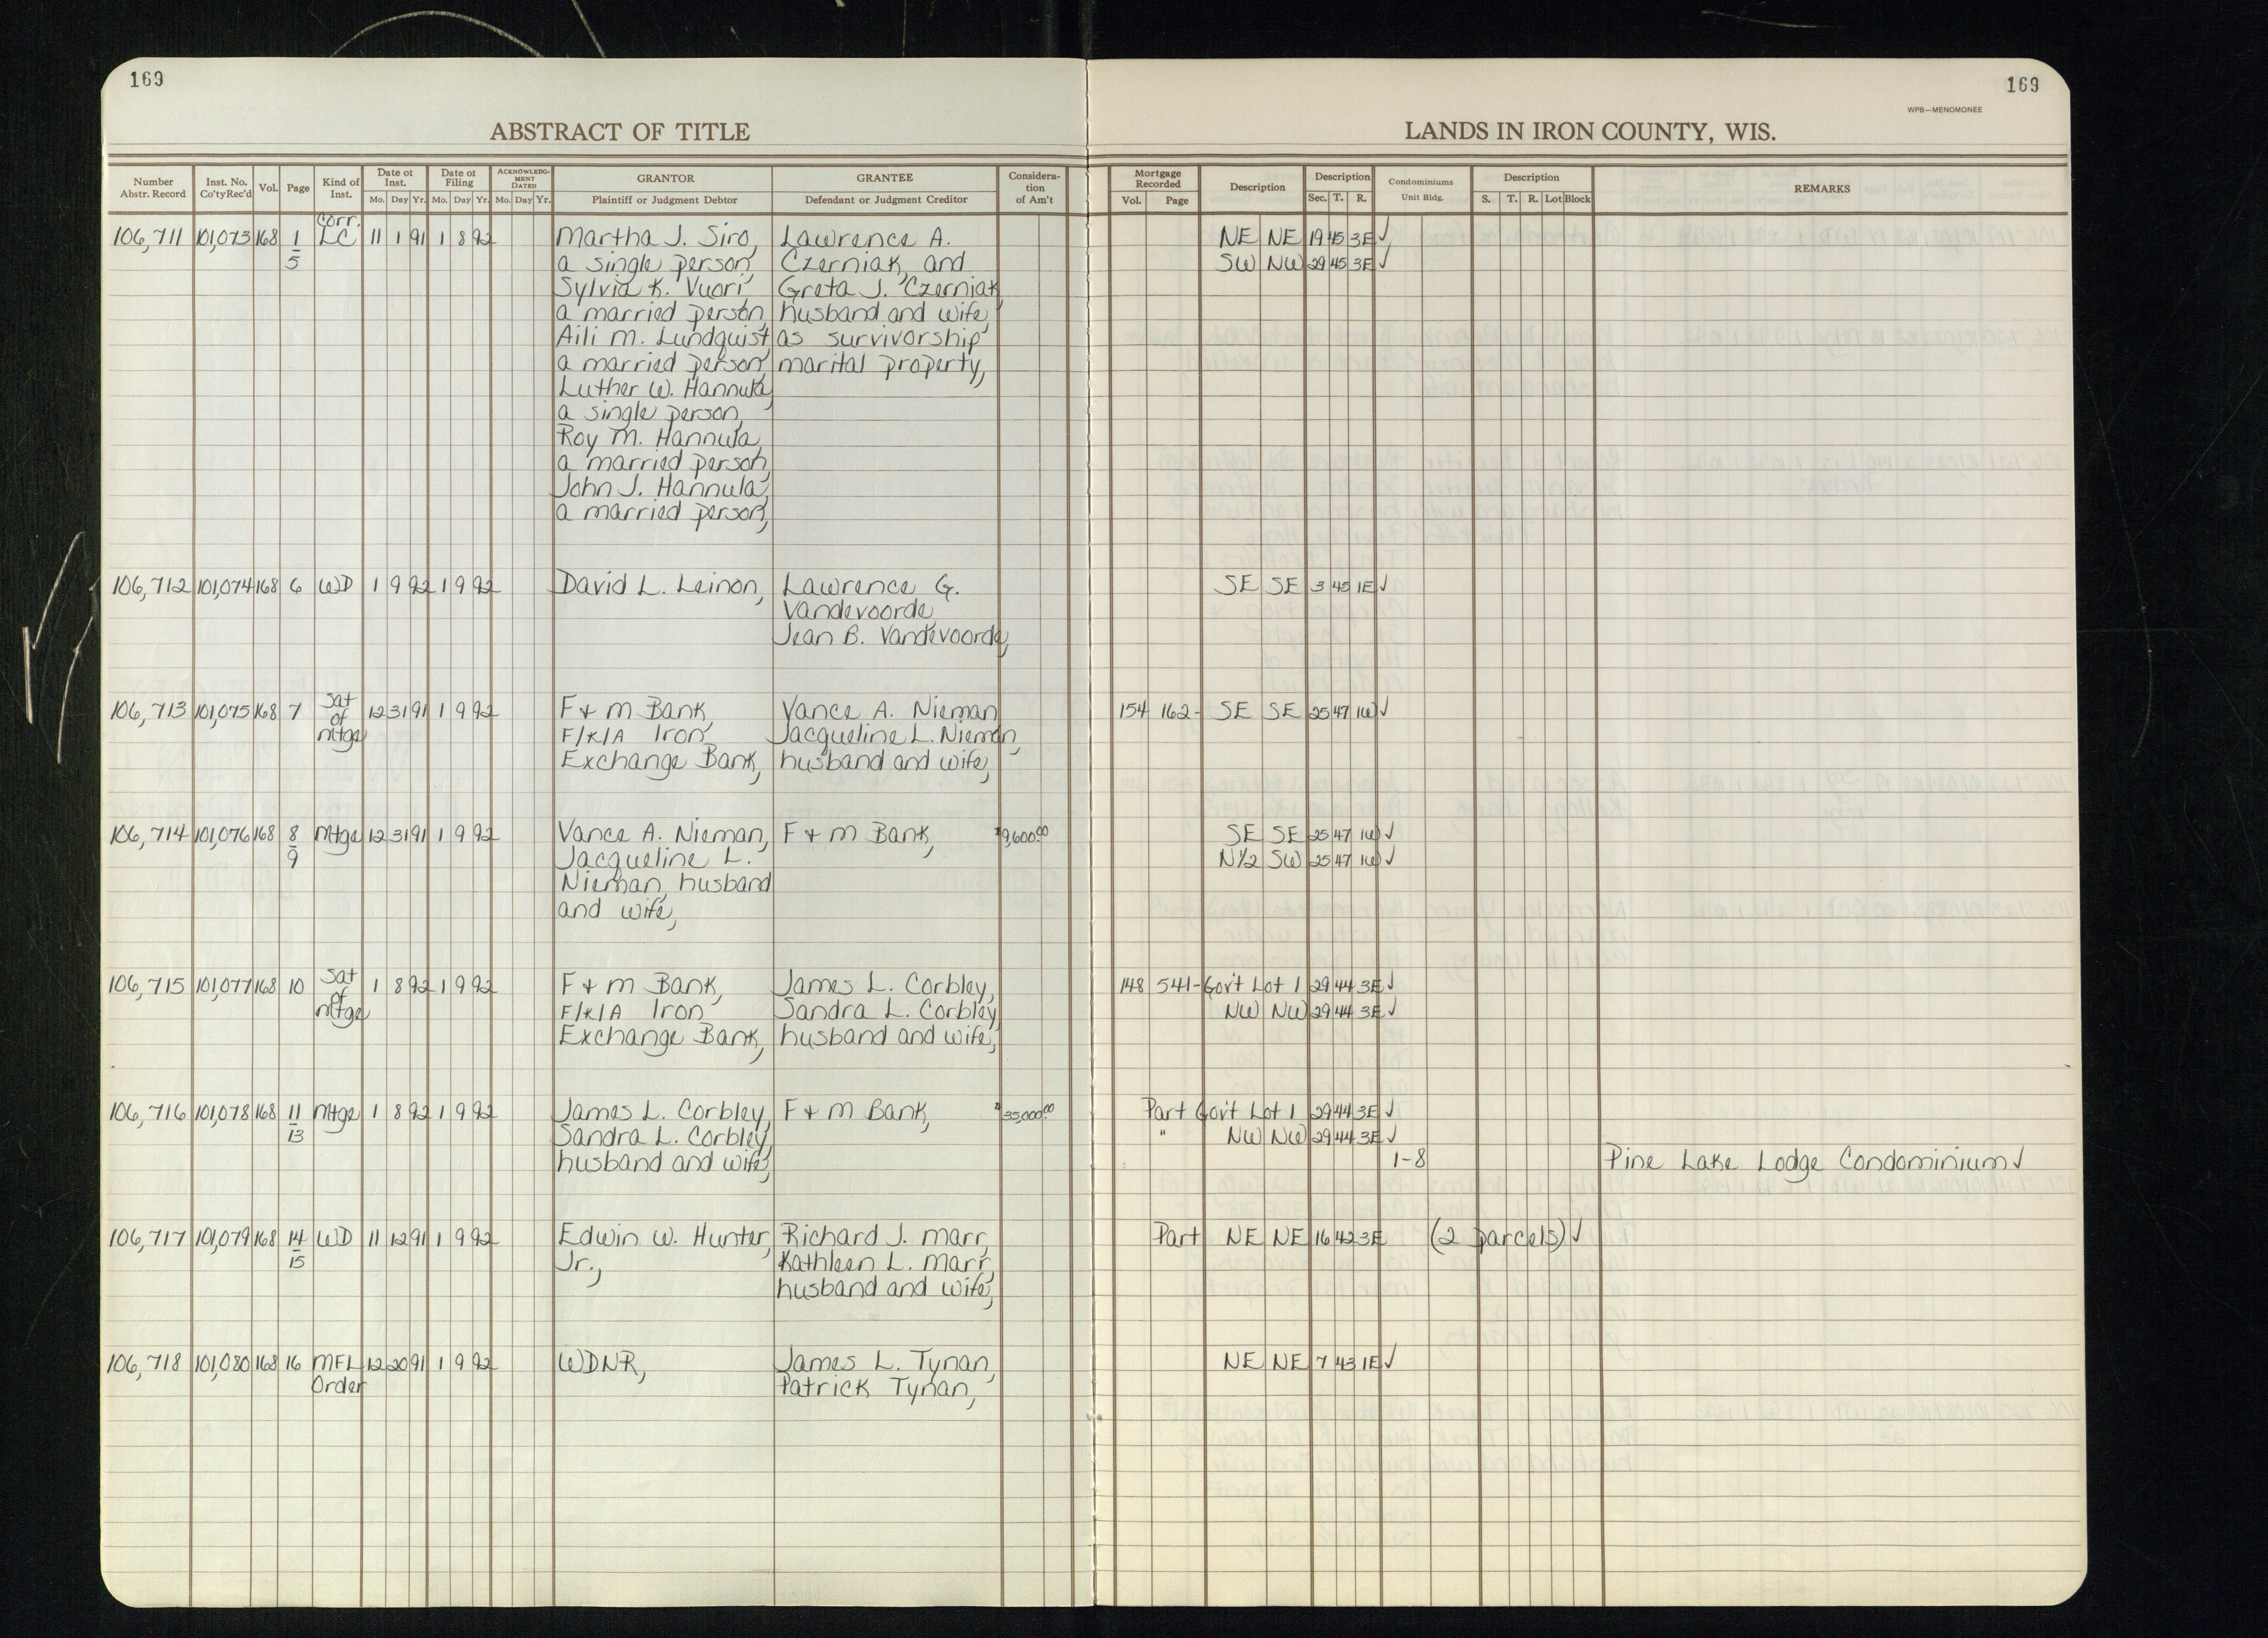 169
169
WPB—MENOMONEE
ABSTRACT OF TITLE
LANDS IN IRON COUNTY, WIS.
Number Abstr. Record | Inst. No. Co'ty Rec'd | Vol. | Page | Kind of Inst. | Date of Inst. Mo. Day Yr. | Date of Filing Mo. Day Yr. | ACKNOWLEDGMENT DATED Mo. Day Yr. | GRANTOR Plaintiff or Judgment Debtor | GRANTEE Defendant or Judgment Creditor | Consideration of Am't | Mortgage Recorded Vol. Page | Description | Description Sec. T. R. | Condominiums Unit Bldg. | Description S. T. R. Lot Block | REMARKS
Corr.
106,711 101,073 168 1 LC 11 1 91 1 8 92 Martha J. Siro, Lawrence A. NE NE 19 45 3E ✓
5 a single person, Czerniak, and SW NW 29 45 3E ✓
Sylvia K. Vuori, Greta J. Czerniak,
a married person, husband and wife,
Aili M. Lundquist, as survivorship
a married person, marital property,
Luther W. Hannula,
a single person,
Roy M. Hannula,
a married person,
John J. Hannula,
a married person,
106,712 101,074 168 6 WD 1 9 92 1 9 92 David L. Leinon, Lawrence G. SE SE 3 45 1E ✓
Vandevoorde,
Jean B. Vandevoorde,
Sat
106,713 101,075 168 7 of 12 31 91 1 9 92 F + M Bank, Vance A. Nieman, 154 162- SE SE 25 47 1W ✓
Mtge F/K/A Iron Jacqueline L. Nieman,
Exchange Bank, husband and wife,
106,714 101,076 168 8 Mtge 12 31 91 1 9 92 Vance A. Nieman, F + M Bank, $9,600.00 SE SE 25 47 1W ✓
9 Jacqueline L. N½ SW 25 47 1W ✓
Nieman, husband
and wife,
Sat
106,715 101,077 168 10 of 1 8 92 1 9 92 F + M Bank, James L. Corbley, 148 541- Gov't Lot 1 29 44 3E ✓
Mtge F/K/A Iron Sandra L. Corbley, NW NW 29 44 3E ✓
Exchange Bank, husband and wife,
106,716 101,078 168 11 Mtge 1 8 92 1 9 92 James L. Corbley, F + M Bank, $35,000.00 Part Gov't Lot 1 29 44 3E ✓
13 Sandra L. Corbley, " NW NW 29 44 3E ✓
husband and wife, 1-8 Pine Lake Lodge Condominium ✓
106,717 101,079 168 14 WD 11 12 91 1 9 92 Edwin W. Hunter, Richard J. Marr, Part NE NE 16 42 3E (2 parcels) ✓
15 Jr., Kathleen L. Marr,
husband and wife,
106,718 101,080 168 16 MFL 12 20 91 1 9 92 WDNR, James L. Tynan, NE NE 7 43 1E ✓
Order Patrick Tynan,